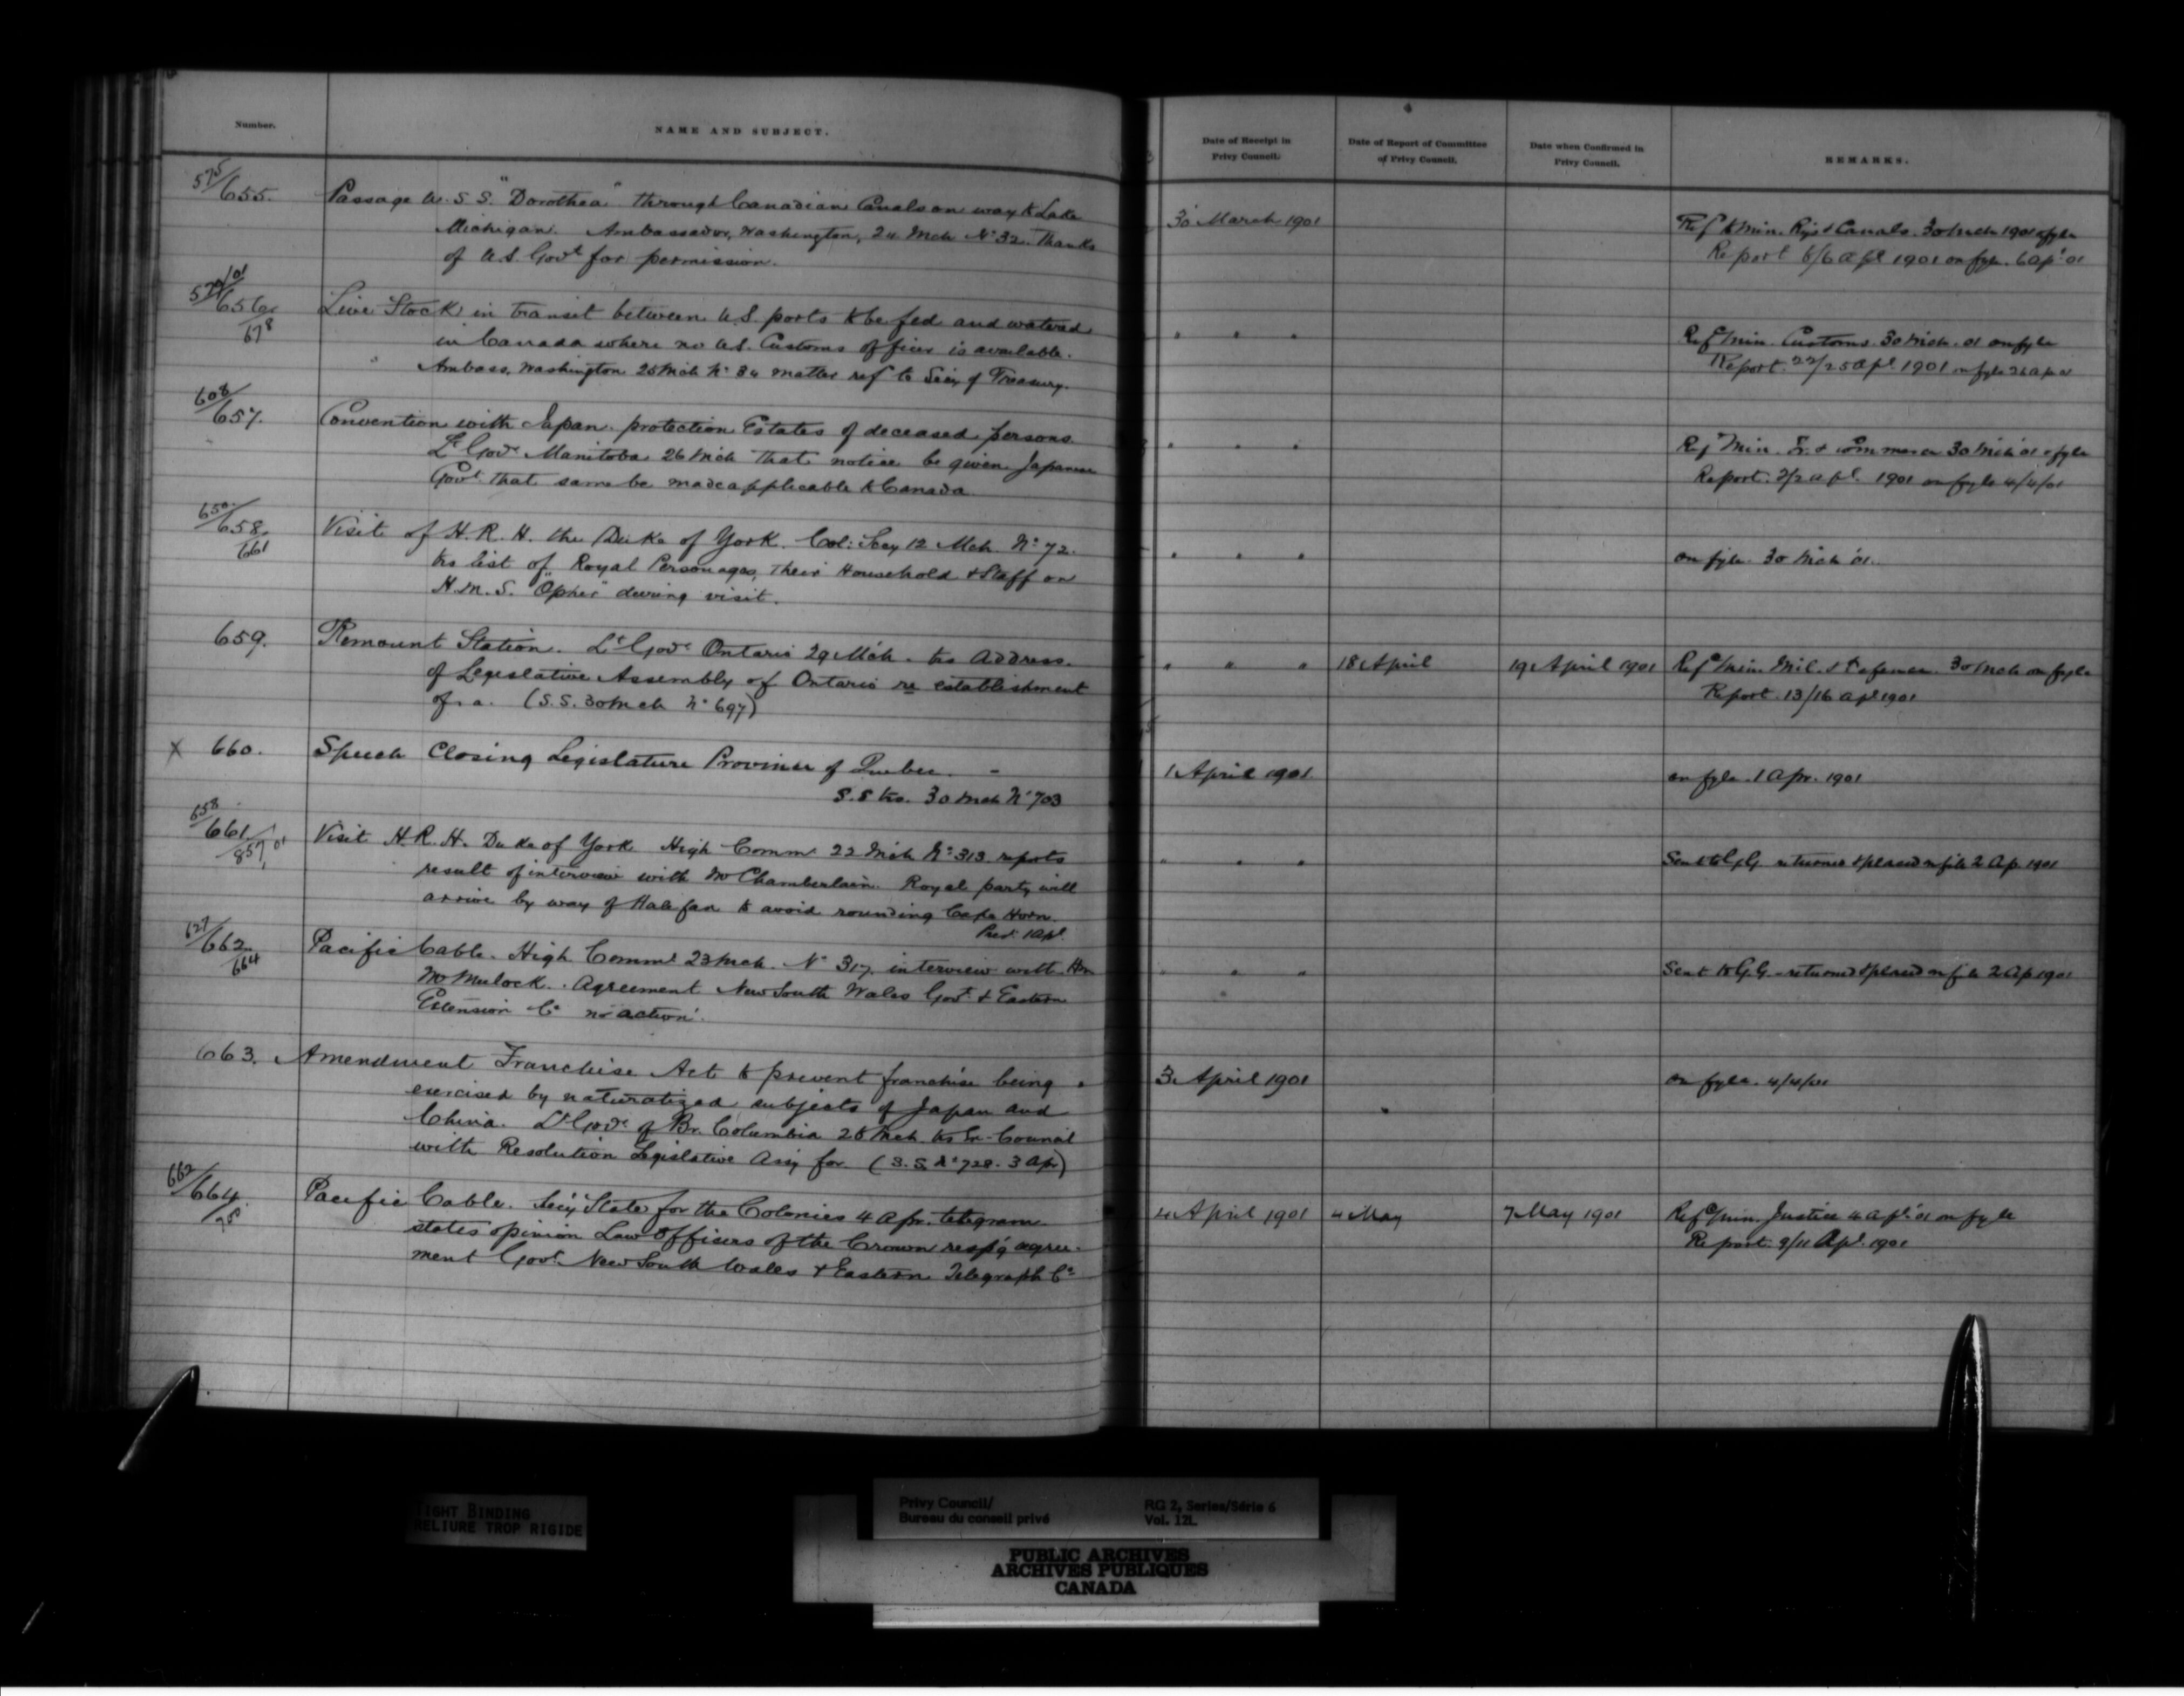 Number.
NAME AND SUBJECT.
Date of Receipt in
Privy Council.
Date of Report of Committee
of Privy Council.
Date when Confirmed in
Privy Council.
REMARKS.
575/655.
Passage U.S.S. "Dorothea" through Canadian Canals on way to Lake
Michigan. Ambassador, Washington, 24 Mch No 32. Thanks
of U.S. Govt for permission.
30 March 1901
Ref to Min. Rys & Canals. 30 Mch 1901 o fyle
Report 6/6 Apl 1901 on fyle. 6 Apl 01
656/678
Live Stock in transit between U.S. ports to be fed and watered
in Canada where no U.S. Customs officer is available.
Ambass. Washington 25 Mch No 34 matter ref to Secy of Treasury.
" " "
Ref Min. Customs 30 Mch. 01 on fyle
Report. 22/25 Apl 1901 on fyle 26 Ap 01
608/657.
Convention with Japan. protection Estates of deceased persons.
Lt Govr Manitoba 26 Mch that notice be given Japanese
Govt that same be made applicable to Canada.
" " "
Ref Min. Tr. & Commerce 30 Mch 01 o fyle
Report. 2/2 Apl. 1901 on fyle 4/4/01
650/658/661
Visit of H.R.H. the Duke of York. Col: Secy 12 Mch. No 72.
trs list of Royal Personages, their Household & Staff on
H.M.S. "Ophir" during visit.
" " "
on fyle. 30 Mch '01.
659.
Remount Station. Lt Govr Ontario 29 Mch. trs Address.
of Legislative Assembly of Ontario re establishment
of a. (S.S. 30 Mch No 697)
" " "
18 April
19 April 1901
Ref Min. Mil. & Defence. 30 Mch on fyle
Report. 13/16 Apl 1901
x 660.
Speech Closing Legislature Province of Quebec. -
S.S trs. 30 Mch No 703
1 April 1901
on fyle. 1 Apr. 1901
658/661/857/01
Visit H.R.H. Duke of York High Commr 22 Mch No 313 reports
result of interview with Mr Chamberlain. Royal party will
arrive by way of Halifax to avoid rounding Cape Horn.
Recd. 1 Apl.
" " "
Sent to G.G. returned & placed on file 2 Ap 1901
627/662/664
Pacific Cable. High Commr 23 Mch. No 317. interview with Hon
Mr Mulock. Agreement New South Wales Govt & Eastern
Extension Co no action.
" " "
Sent to G.G. - returned & placed on file 2 Ap 1901
663.
Amendment Franchise Act to prevent franchise being
exercised by naturalized subjects of Japan and
China. Lt Govr of Br. Columbia 28 Mch trs Ex-Council
with Resolution Legislative Assy for. (S.S. No 728. 3 Apr)
3 April 1901
on fyle. 4/4/01
662/664/700
Pacific Cable. Secy State for the Colonies 4 Apr. telegram
states opinion Law Officers of the Crown resp'g agree-
ment Govt. New South Wales & Eastern Telegraph Co
4 April 1901
4 May
7 May 1901
Ref Min. Justice 4 Apl. 01 on fyle
Report. 9/11 Apl. 1901
TIGHT BINDING
RELIURE TROP RIGIDE
Privy Council/
Bureau du conseil privé
RG 2, Series/Série 6
Vol. 12L
PUBLIC ARCHIVES
ARCHIVES PUBLIQUES
CANADA